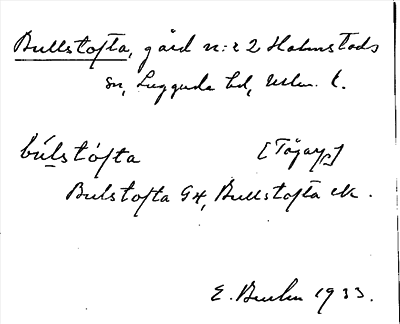 Bullstofta, gård n:r 2 Halmstads
sn, Luggude hd, Mlm. l.
búlstófta [Tågarp]
Bulstofta GK, Bullstofta ek.
E. 1933.